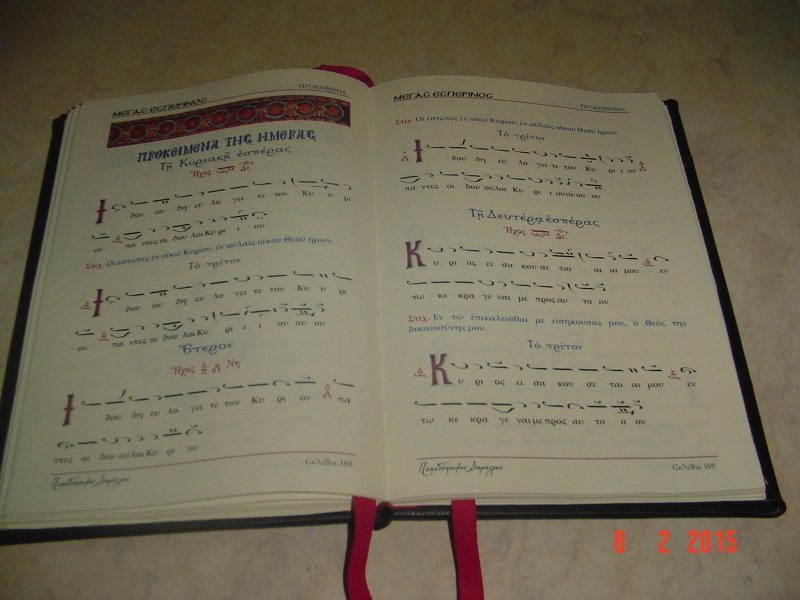 ΜΕΓΑΣ ΕΣΠΕΡΙΝΟΣ
ΠΡΟΚΕΙΜΕΝΑ
ΠΡΟΚΕΙΜΕΝΑ ΤΗΣ ΗΜΕΡΑΣ
Τῇ Κυριακῇ ἑσπέρας
Ἦχος Δι
Ι δου ου δη ευ λο γει τε τον Κυ υ ρι
ον πα ντες οι δου λοι Κυ ρι ι ου
Στίχ. Οἱ ἑστῶτες ἐν οἴκῳ Κυρίου, ἐν αὐλαῖς οἴκου Θεοῦ ἡμῶν.
Τὸ τρίτον
Ι δου ου δη ευ λο γει τε τον Κυ υ ρι
ον πα ντες οι δου λοι Κυ ρι ι ι ου ου ου
Ἕτερον
Ἦχος Νη
Ι δου δη ευ λο γει τε τον Κυ ρι ον πα
ντες οι δου ου λοι Κυ ρι ου
Παπαδόπουλος Δημήτριος
Σελίδα 168
ΜΕΓΑΣ ΕΣΠΕΡΙΝΟΣ
ΠΡΟΚΕΙΜΕΝΑ
Στίχ. Οἱ ἑστῶτες ἐν οἴκῳ Κυρίου, ἐν αὐλαῖς οἴκου Θεοῦ ἡμῶν.
Τὸ τρίτον
Ι δου δη ευ λο γει τε τον Κυ ρι ον
πα ντες οι δου ου λοι Κυ ρι ι ου ου ου
Τῇ Δευτέρᾳ ἑσπέρας
Ἦχος Δι
Κ υ ρι ος ει σα κου σε ται αι αι μου εν
τω κε κρα γε ναι με προς αυ το ον
Στίχ. Ἐν τῷ ἐπικαλεῖσθαί με εἰσήκουσάς μου, ὁ Θεὸς τῆς
δικαιοσύνης μου.
Τὸ τρίτον
Κ υ ρι ος ει σα κου σε ται αι μου εν
τω κε κρα γε ναι με προς αυ το ο ον
Παπαδόπουλος Δημήτριος
Σελίδα 169
8 2 2015